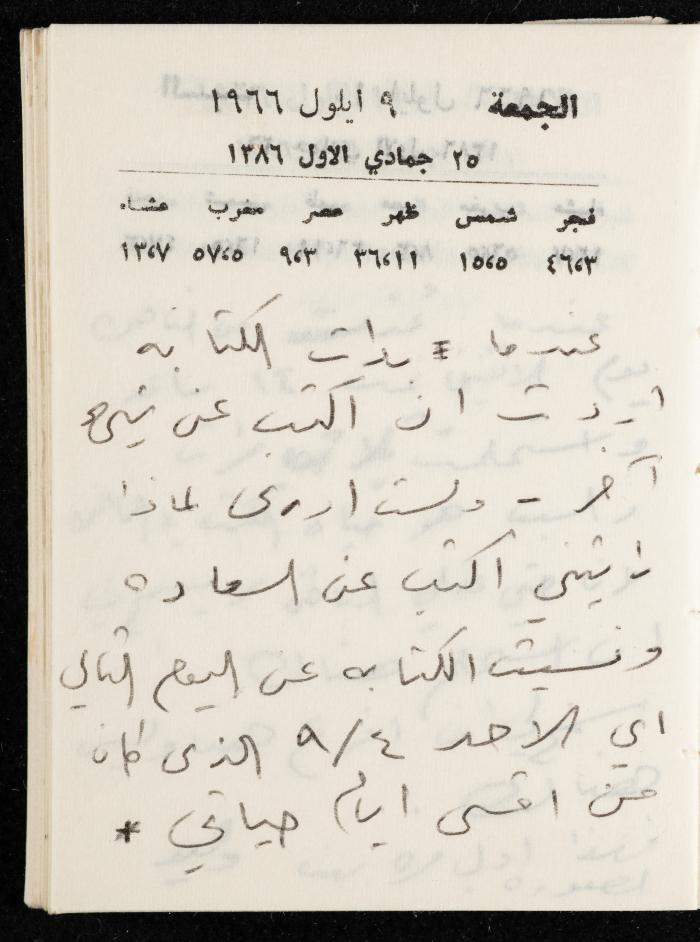 الجمعة ٩ ايلول ١٩٦٦
٢٥ جمادي الاول ١٣٨٦
فجر شمس ظهر عصر مغرب عشاء
٤٦،٣ ١٥،٥ ٣٦،١١ ٩،٣ ٥٧،٥ ١٣،٧
عندما بدات الكتابه
اردت ان اكتب عن شيء
آخر - ولست ادرى لماذا
رايتني اكتب عن السعاده
ونسيت الكتابه عن اليوم التالي
اي الاحد ٩/٤ الذى كان
من اقسى ايام حياتي *